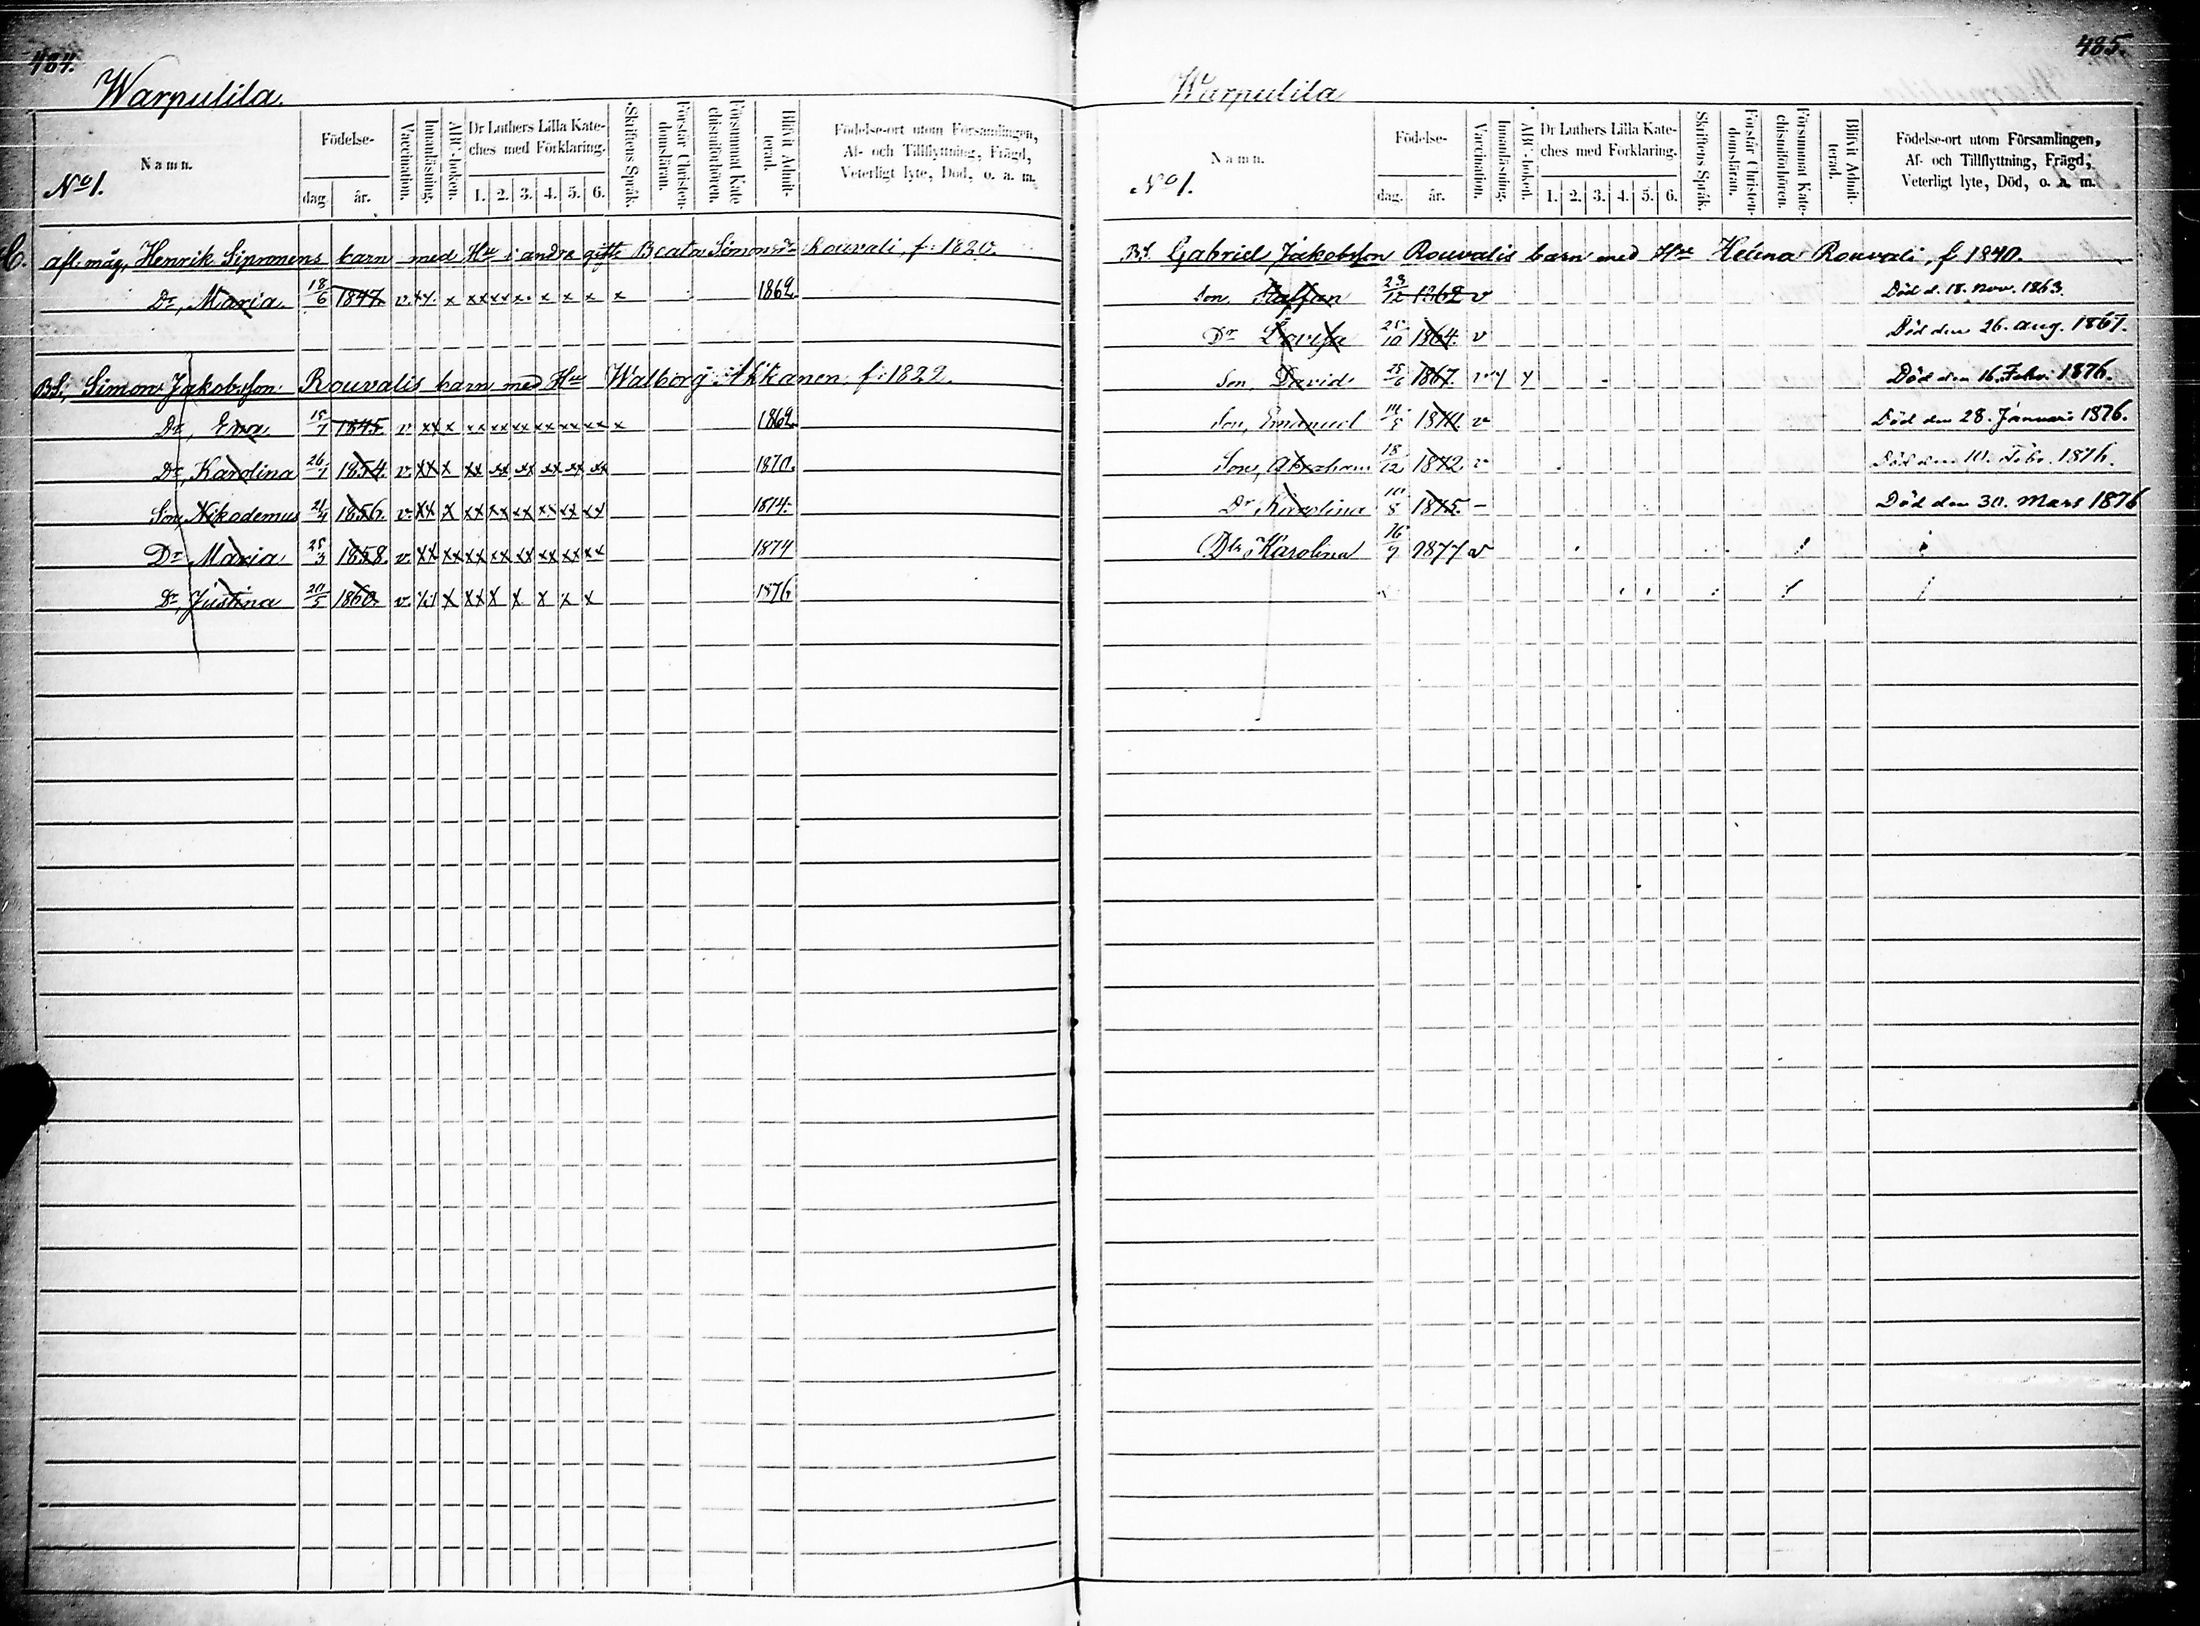 484.
Warpulila.
No 1.
Namn.
Födelse-
dag år.
Vaccination.
Innanläsning.
ABC-boken.
Dr Luthers Lilla Kate-
ches med Förklaring.
1. 2. 3. 4. 5. 6.
Skriftens Språk.
Förstår Christen-
domsläran.
Försummat Kate-
chismiförhören.
Blifvit Admit-
terad.
Födelse-ort utom Församlingen,
Af- och Tillflyttning, Frägd,
Veterligt lyte, Död, o. a. m.
C. afl. måg, Henrik Sipronens barn med Hu i andra gifte Beata Simonsdr Rouvali, f. 1820.
Dr, Maria 18/6 1847. v. xx x xx xx x x x x x 1862
BS, Simon Jakobsson Rouvalis barn med Hu Walborg Akkanen, f. 1822.
Dr, Eva 15/7 1845 v xx x xx xx xx xx xx xx x 1862
Dr, Karolina 26/1 1854 v. xx x xx xx xx xx xx xx 1870.
Son, Nikodemus 21/4 1856. v. xx x xx xx xx xx xx xx 1874.
Dr Maria 25/3 1858. v. xx xx xx xx xx xx xx xx 1874
Dr, Justina 20/5 1860 v. x x xx x x x x x 1876
485.
Warpulila
No 1.
Namn.
Födelse-
dag. år.
Vaccination.
Innanläsning.
ABC-boken.
Dr Luthers Lilla Kate-
ches med Förklaring.
1. 2. 3. 4. 5. 6.
Skriftens Språk.
Förstår Christen-
domsläran.
Försummat Kate-
chismiförhören.
Blifvit Admit-
terad.
Födelse-ort utom Församlingen,
Af- och Tillflyttning, Frägd,
Veterligt lyte, Död, o. a. m.
BS. Gabriel Jakobsson Rouvalis barn med Hu Helena Rouvali, f 1840.
Son, Staffan 23/12 1862 v Död d. 18. nov. 1863.
Dr Lovisa 25/10 1864. v Död den 26. aug. 1867.
Son, David 25/6 1867. v Död den 16. Febr. 1876.
Son, Emanuel 1870. v Död den 28. Januari 1876.
Son, Abraham 18/12 1872 v Död den 10. Febr. 1876.
Dr Karolina 10/8 1875. - Död den 30. Mars 1876
Dtr Karolina 16/9 1877 v